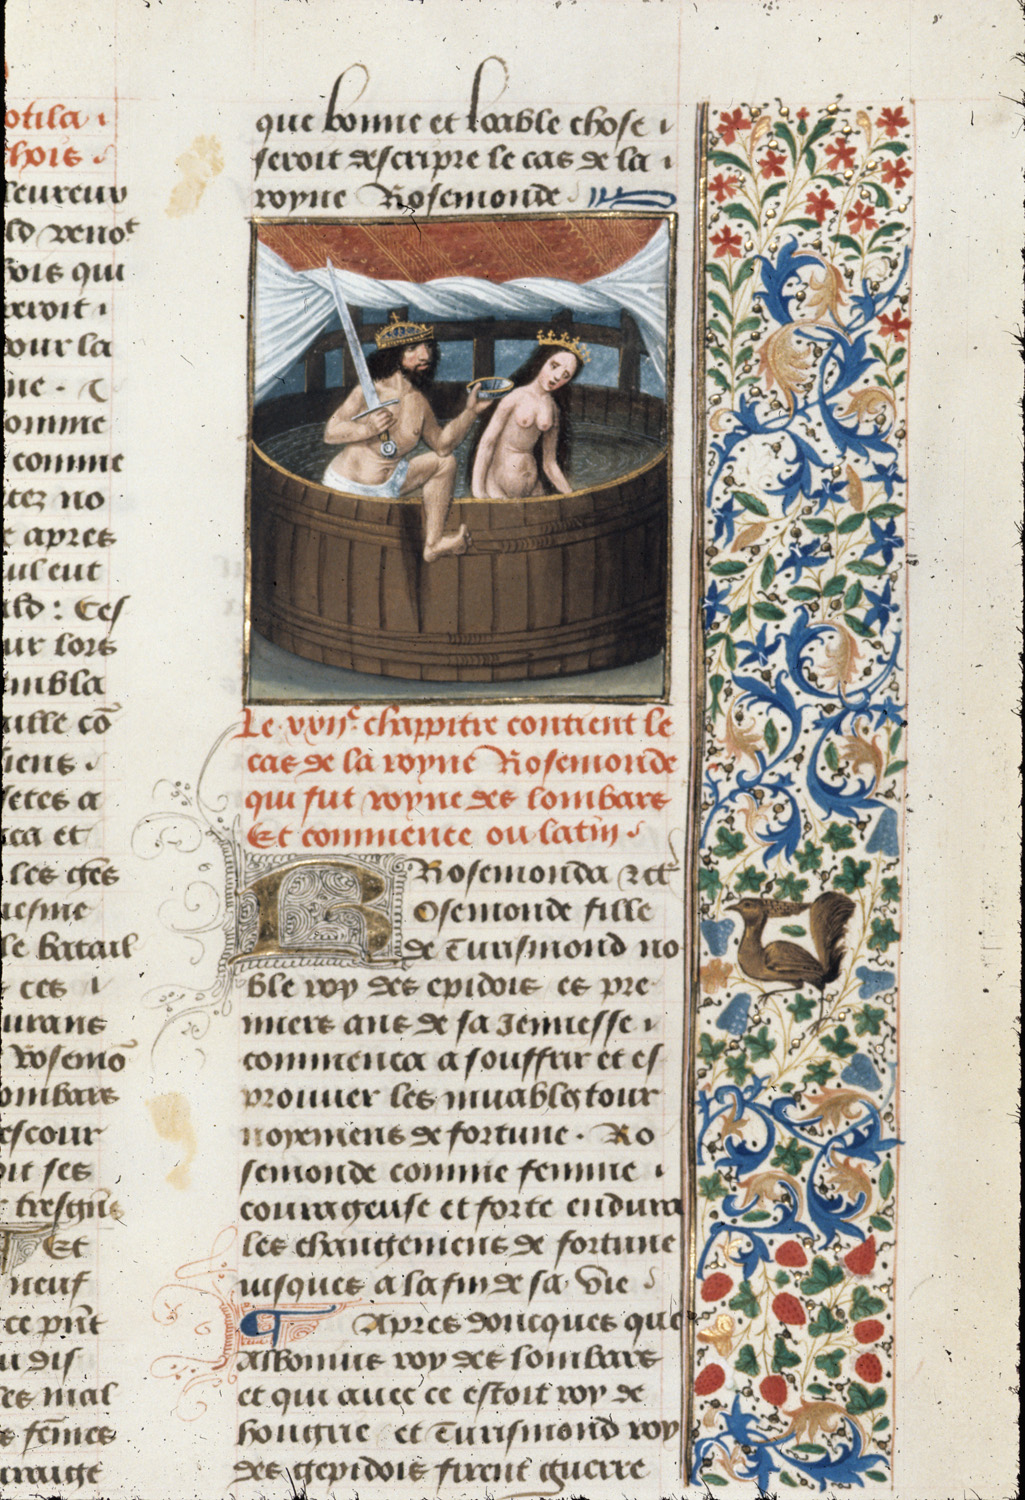 otila
chois
leureux
ld venot
fois qui
seroit
pour la
me . C
comme
comme
tez no
t apres
ul eut
ald : Ces
ur lors
mbla
uille cō
siens
setes a
ca et
les gēs
mesme
le batail
ces
urans
Rosemō
ombars
escour
ses
tresgūs
Et
neuf
ce pn̄t
u dis
es mal
s fēmes
que bonne et loable chose
seroit descripre le cas de la
royne Rosemonde
Le xxiie chappitre contient le
cas de la royne Rosemonde
qui fut royne des lombars
Et commence ou latin
Rosemonda &ct
ROsemonde fille
de Turismond no
ble roy des epidois es pre
miers ans de sa Jennesse
commenca a souffrir et es
prouuer les muables tour
noyemens de fortune . Ro
semonde comme femme
courageuse et forte endura
les changemens de fortune
iusques a la fin de sa vie
Apres doncques que
albonnis roy des lombars
et qui auec ce estoit roy de
hongrie et Turismond roy
des gepidois firent guerre